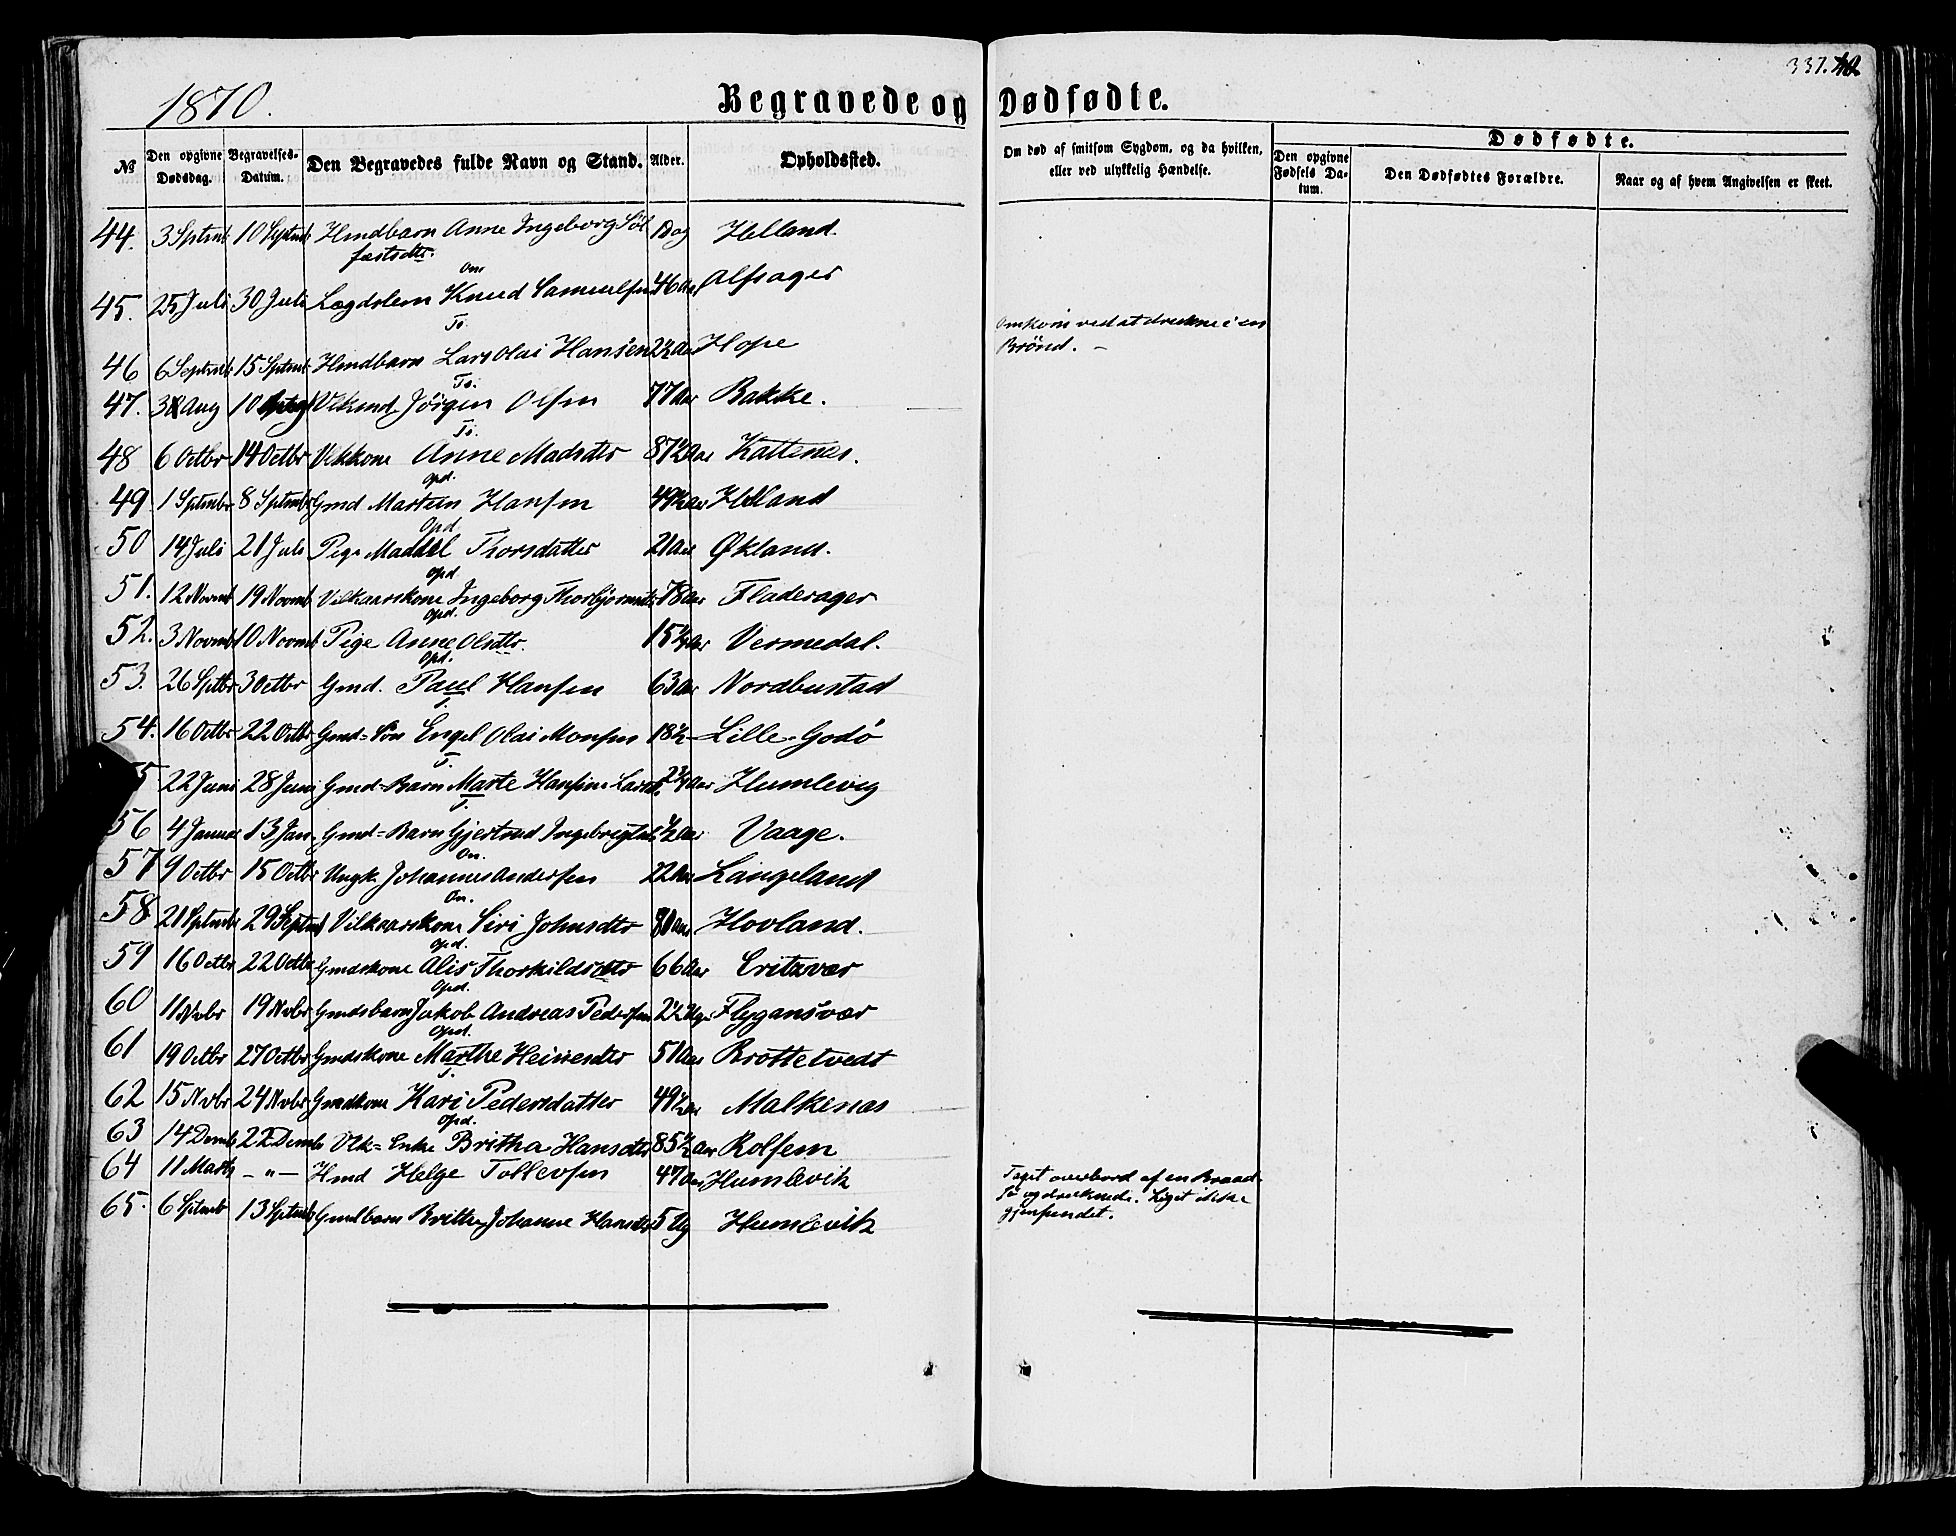 337.
1870.
Begravede og Dødfødte.
№ Den opgivne Dødsdag. Begravelses-Datum. Den Begravedes fulde Navn og Stand. Alder. Opholdssted. Om død af smitsom Sygdom, og da hvilken, eller ved ulykkelig Hændelse. Den opgivne Fødsels Datum. Dødfødte. Den Dødfødtes Forældre. Naar og af hvem Angivelsen er skeet.
44. 3 Septmb 10 Septmb Hmdbarn Anne Ingeborg Söl 1 Dag Helland.
festsdtr.
On
45. 25 Juli 30 Juli Lægdslem Knud Samuelsen 46 Aar Alfsager
To.
Omkom ved at drukne i en
Brönd. –
46 6 Septmb 15 Septmb Hmdbarn Lars Olai Hansen 2½ Aar Hope
To.
47. 3 Aug 10 Vlkmd Jörgen Olsen 77 Aar Bakke.
To.
48 6 Octbr 14 Octbr Vlkkone Anne Madsdtr 87½ Aar Kattenes.
Opd.
49. 1 Septmbr 8 Septmbr Gmd Martin Hansen 49½ Aar Helland
Opd
50 14 Juli 21 Juli Pige Maddel Thorsdatter 21 Aar Økland.
Opd
51. 12 Novmb 19 Novmb Vilkaarskone Ingeborg Thorbjörnsdtr 78 Aar Fladerager
Opd.
52. 3 Novmb 10 Novmb Pige Anne Olsdtr. 15½ Aar Vermedal.
Opd.
53. 26 Septbr 3 Octbr Gmd. Paul Hansen 63 Aar Nordbustad
T.
54. 16 Octbr 22 Octbr Gmd=Sön Engel Olai Monsen 18½ Lille-Godö
T.
55 22 Juni 28 Juni Gmd=Barn Marte Hansine Larsd. 2¾ Aar Humlevig
T.
56 4 Januar 13 Jan. Gmd=Barn Gjertrud Ingebrigtsd ½ Aar Vaage.
On.
57 9 Octbr 15 Octbr Ungk. Johannes Andersen 22 Aar Langeland
On.
58 21 Septmb 29 Septmb Vilkaarskone Siri Johnsdtr Aar Hovland.
Opd.
59 16 Octbr 22 Octbr Gmdskone Alis Thorkildsdtr 66 Aar Critzvær
Opd.
60 11 Nvbr 19 Nvbr Gmdsbarn Jakob Andreas Pedersen 2½ Uge Flygansvær
Opd.
61 19 Octbr 27 Octbr Gmdskone Marthe Heinesdtr 51 Aar Brottetvedt
T.
62 15 Nvbr 24 Nvbr Gmdkone Kari Pedersdatter 49½ Aar Malkenæs
Opd.
63 14 Decmb 22 Decmb Vlk=Enke Britha Hansdtr 85½ Aar Rolfsm
64 11 Marts – „ – Hmd Helge Tollevsen 47 Aar Humlevik
Taget overbord af en Braad
Sö og druknede. Liget ikke
gjenfundet.
65. 6 Septmb 13 Septmb Gmdbarn Brithe Johanne Hansdtr 5 Ug Humlevik